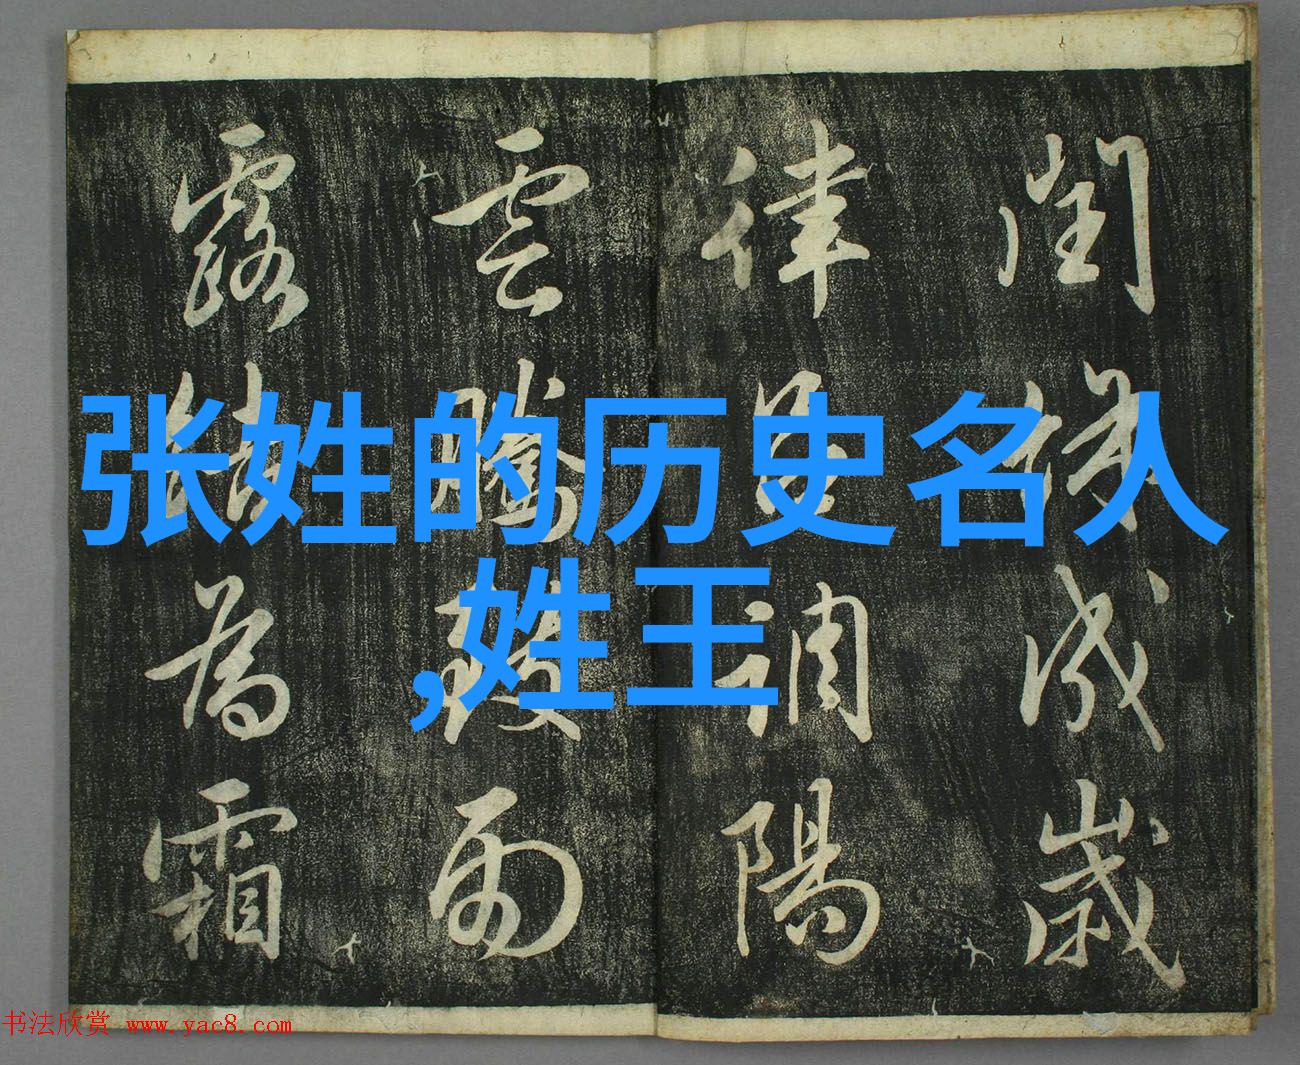 閏餘成歲
律呂調陽
雲騰致雨
露結為霜
张姓的历史名人
,姓王
书法欣赏 www.yac8.com